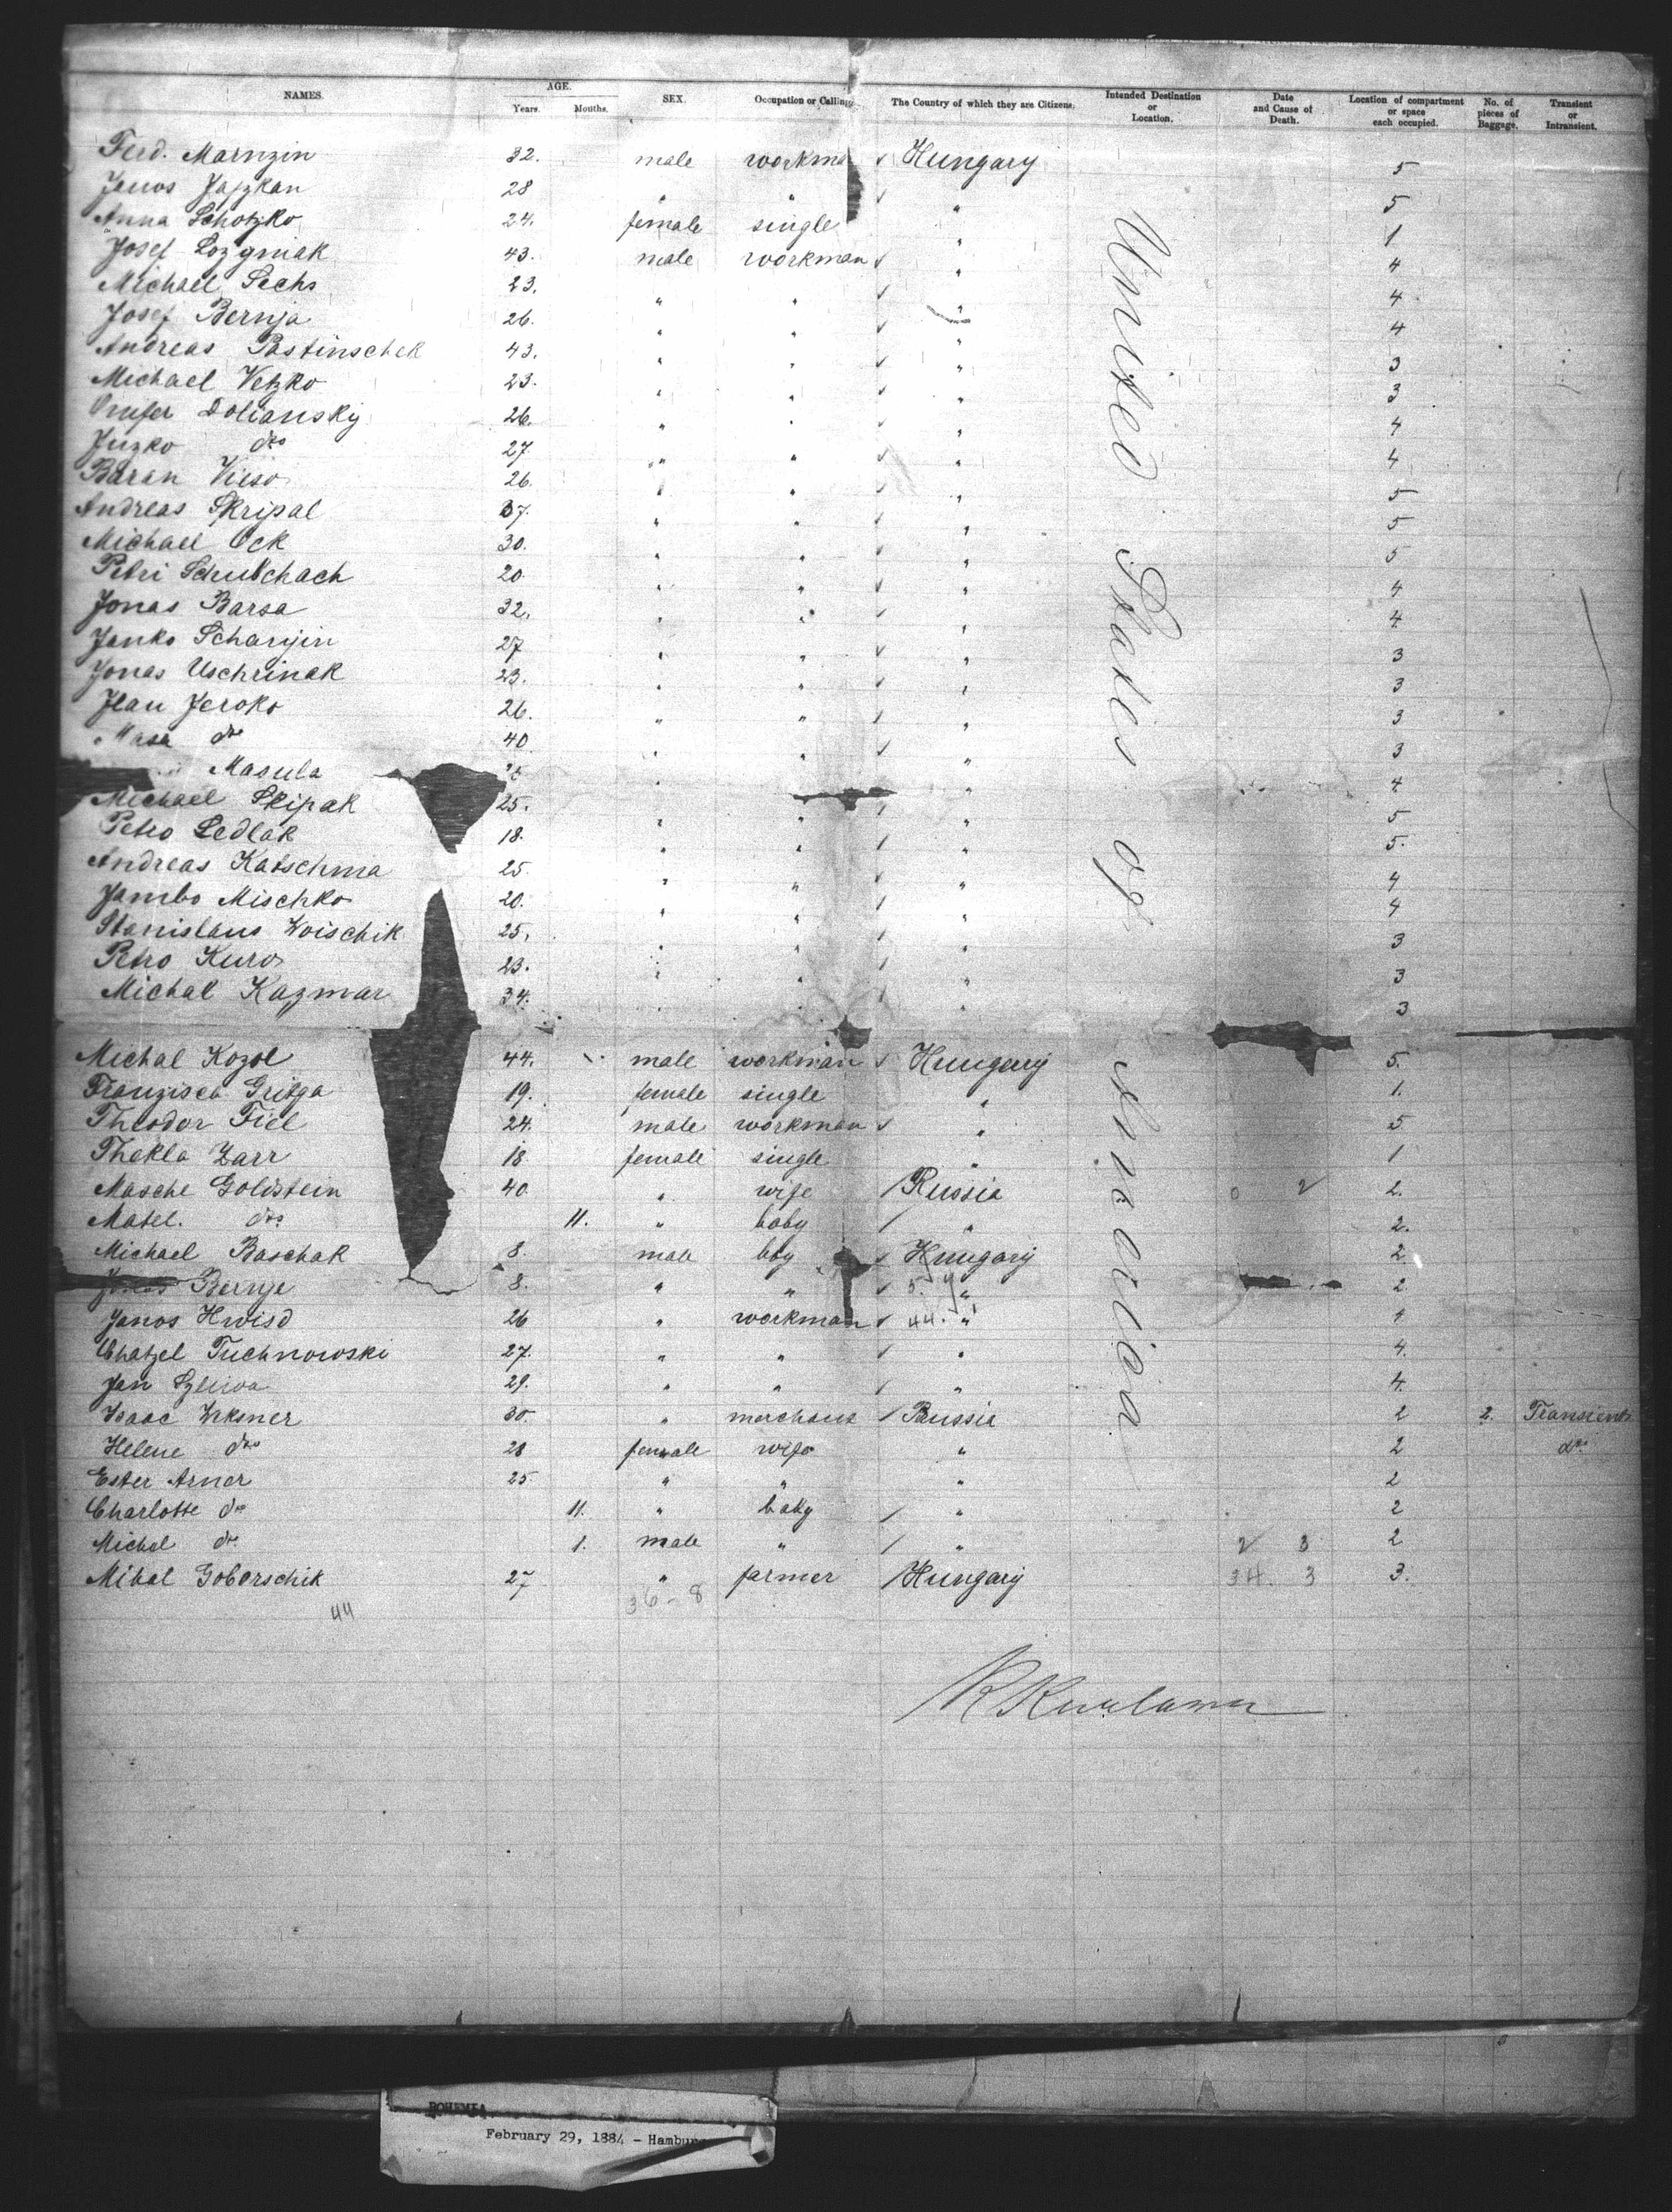 NAMES. AGE. Years. Months. SEX. Occupation or Calling. The Country of which they are Citizens. Intended Destination or Location. Date and Cause of Death. Location of compartment or space each occupied. No. of pieces of Baggage. Transient or Intransient.
Ferd. Marnzin 32. male workma ✓ Hungary 5
Janos Jajzkan 28 " " ✓ " 5
Anna Schotzko 24. female single " 1
Josef Lozyniak 43. male workman ✓ " 4
Michael Sechs 23. " " ✓ " 4
Josef Bernja 26. " " ✓ " 4
Andreas Pastinschek 43. " " ✓ " 3
Michael Vetzko 23. " " ✓ " 3
Onufer Dolianskij 26. " " ✓ " 4
Juzko do 27. " " ✓ " 4
Baran Vieso 26. " " ✓ " 5
Andreas Skripal 37. " " ✓ " 5
Michael Ock 30. " " ✓ " 5
Petri Schubchach 20. " " ✓ " 4
Jonas Barsa 32. " " ✓ " 4
Janko Scharijin 27 " " ✓ " 3
Jonas Uschrinak 23. " " ✓ " 3
Ilau Jeroko 26. " " ✓ " 3
do 40 " " ✓ " 3
Masula " " " 4
Michael Skipak 25. " " ✓ " 5
Petro Sedlak 18. " " ✓ " 5.
Andreas Katschma 25. " " ✓ " 4
Jambo Mischko 20. " " ✓ " 4
Stanislaus Woischik 25. " " ✓ 3
Petro Kuro 23. " " ✓ " 3
Michal Kazmar 34. " " ✓ " 3
Michal Kozol 44. male workman ✓ Hungary 5.
Franzisca Gritga 19. female single " 1.
Theodor Fiel 24. male workman ✓ " 5
Thekla Zarr 18 female single " 1
Masche Goldstein 40. " wife / Russia 0 2 2.
Matel. do 11. " baby / " 2.
Michael Baschak 8. male boy ✓ Hungary 2
Bernja 8. " " ✓ 5. 4 " 2
Janos Hwisd 26 " workman ✓ 44. " 4
Chatzel Tuchnowski 27. " " ✓ " 4.
Jan 29. " " ✓ " 4.
Isaac Wksner 30. " merchant / Russia 2 2. Transient
Helene do 28 female wife " 2 do
Ester Arner 25 " " " 2
Charlotte do 11. " baby / " 2
Michel do 1. male " / " 2 3 2
Mihal Goborschik 27 " farmer / Hungary 34. 3 3.
44 36 - 8
United States of America
BOHEMIA
February 29, 1884 - Hamburg